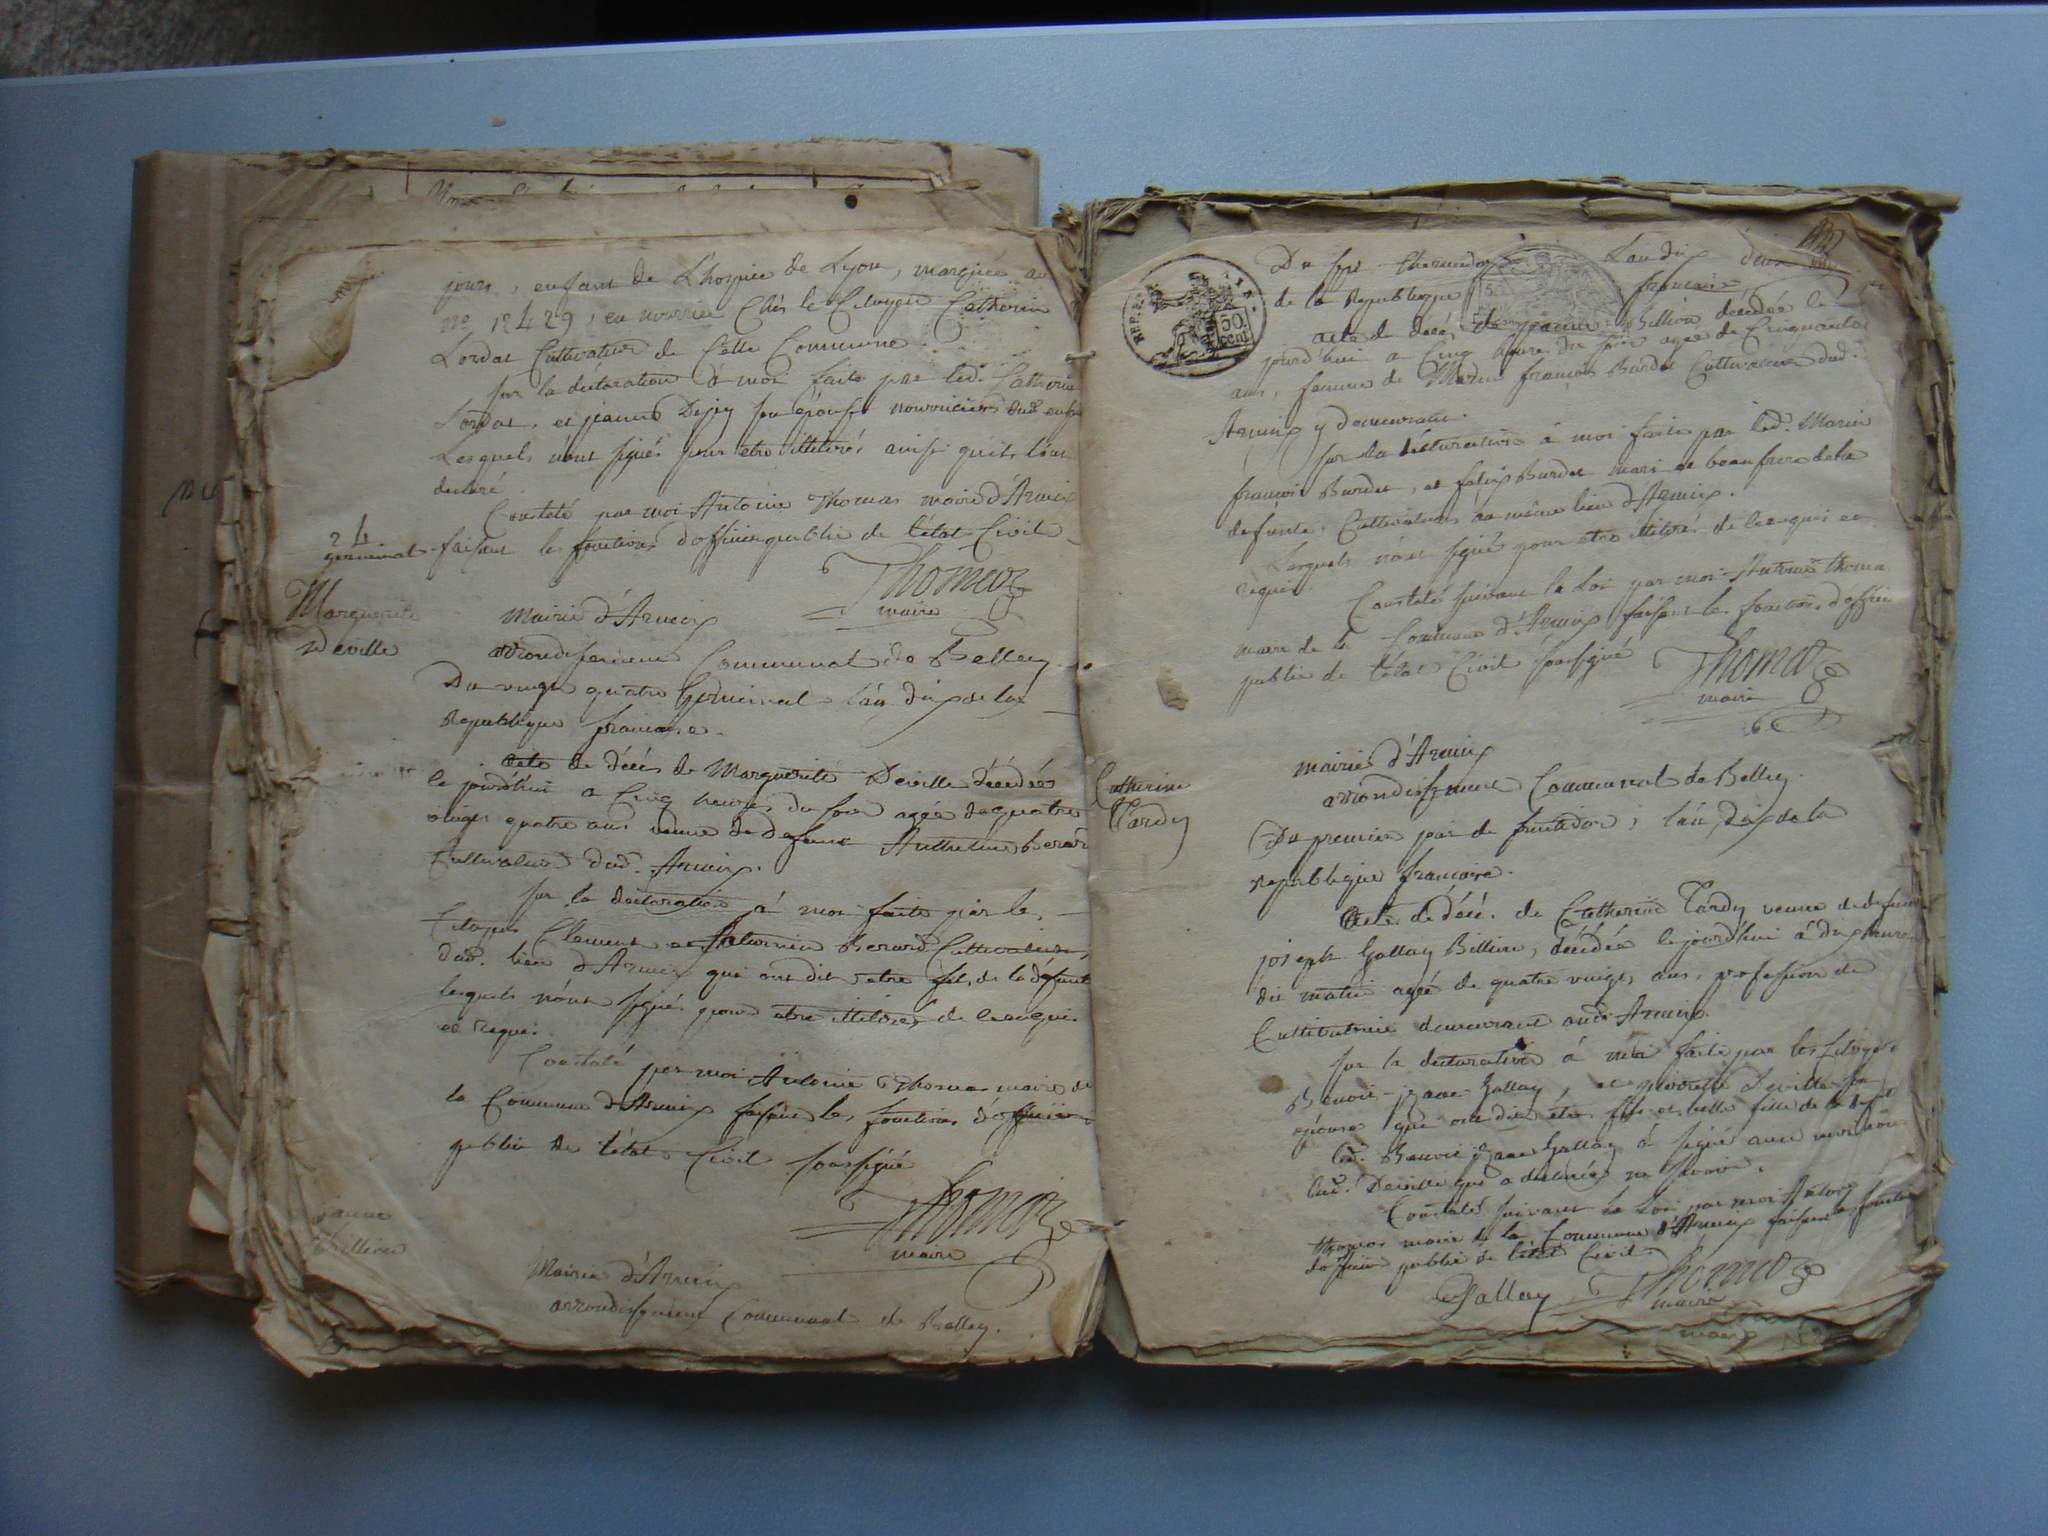 jours, enfant de L'hospice de Lyon, marquée au
no 12429, en nourrice Chés le Citoyen Catherin
Lordat Cultivateur de Cette Commune.
sur la déclaration à moi faite par led. Catherin
Lordat, et jeanne son épouse nourriciers dud. enfant
Lesquels n'ont signés pour etre illiterés ainsi qu'ils l'ont
declaré.
Constaté par moi Antoine Thomas maire d'Armix
faisant les fonctions d'officier public de l'état Civil
Thomas
maire
24
germinal
Marguerite
Deville
mairie d'Armix
arrondissement Communal de Belley
Du vingt quatre Germinal l'an dix de la
Republique francaise.
acte de décés de Marguerite Deville décédée
le jourd'hui a Cinq heures du soir agée de quatre
vingt quatre ans veuve de defunt Anthelme Berard
Cultivateur dud. Armix.
sur la déclaration à moi faite par le
Citoyens Clement et Saturnin Berard Cultivateurs
dud. lieu d'Armix qui ont dit etre fils de la défunte
lesquels n'ont signés pour etre illiterés de ce enquis
et requis.
Constaté par moi Antoine Thomas maire de
la Commune d'Armix faisant les fonctions d'officier
public de l'état Civil soussigné
Thomas
maire
Jeanne
Billion
Mairie d'Armix
arrondissement Communal de Belley.
50
cent.
Du thermidor L'an dix
de la Republique francaise
acte de décés de jeanne Billion décédée le
jourd'hui a Cinq heures du soir agée de Cinquante
ans, femme de Marin françois Burdet Cultivateur dud.
Armix y demeurant.
sur la déclaration à moi faite par led. Marin
françois Burdet, et felix Burdet mari et beaufrere de la
defunte, Cultivateurs au même lieu d'Armix.
Lesquels n'ont signé pour etre illiteré de ce enquis et
requis.
Constaté suivant la Loi par moi Antoine thomas
maire de la Commune d'Armix faisant les fonctions d'officier
public de l'état Civil soussigné
Thomas
maire
Catherine
Tardy
mairie d'Armix
arrondissement Communal de Belley.
Du premier jour de fructidor, l'an dix de la
republique francaise.
Acte de décé. de Catherine Tardy veuve de defunt
joseph Gallay Billion, décédée le jourd'hui à dix heures
du matin agée de quatre vingt, ans, profession de
Cultivatrice demeurant aud. Armix.
sur la déclaration à moi faite par les Citoyens
Benoit Gallay, et Deville sa
épouse qui ont dit être fils et belle fille de la defunte
led. Benoit Gallay à signé avec moi non
lad. Deville qui a declarée ne savoir.
Constaté suivant la Loi par moi Antoine
thomas maire de la Commune d'Armix faisant les fonctions
d'officier public de l'état Civil.
Gallay Thomas
maire